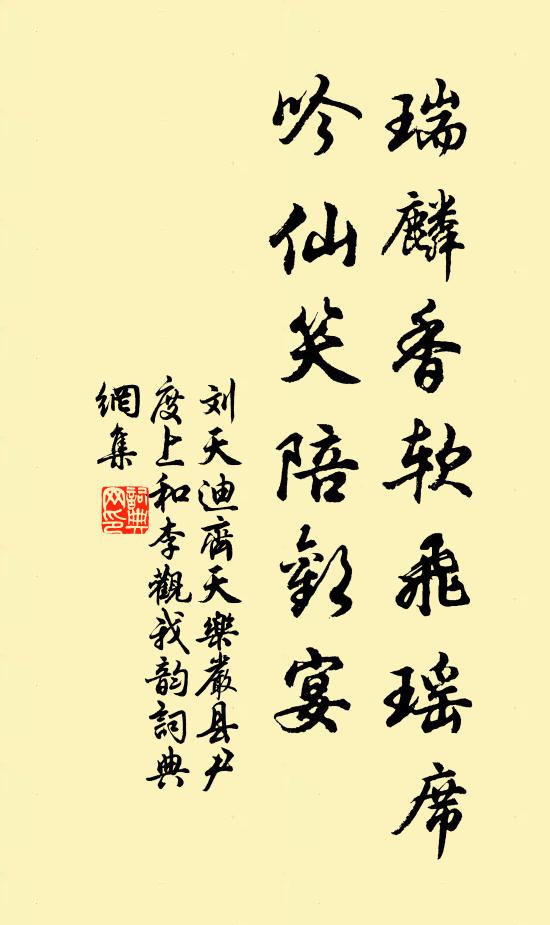 瑞麟香软飛瑶席
吟仙笑陪歡宴
刘天迪齊天樂嚴县尹
度上和李觀我韵詞典
網集
詞典網印